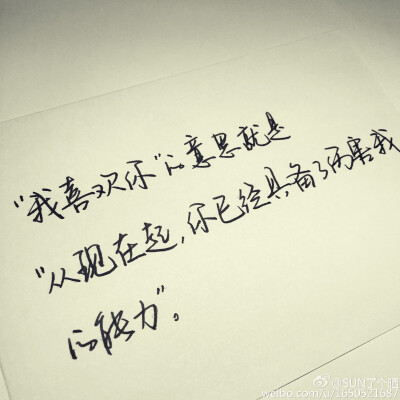 “我喜欢你”的意思就是
“从现在起，你已经具备了伤害我
的能力”。
@SUN了个晒
weibo.com/u/1650521687